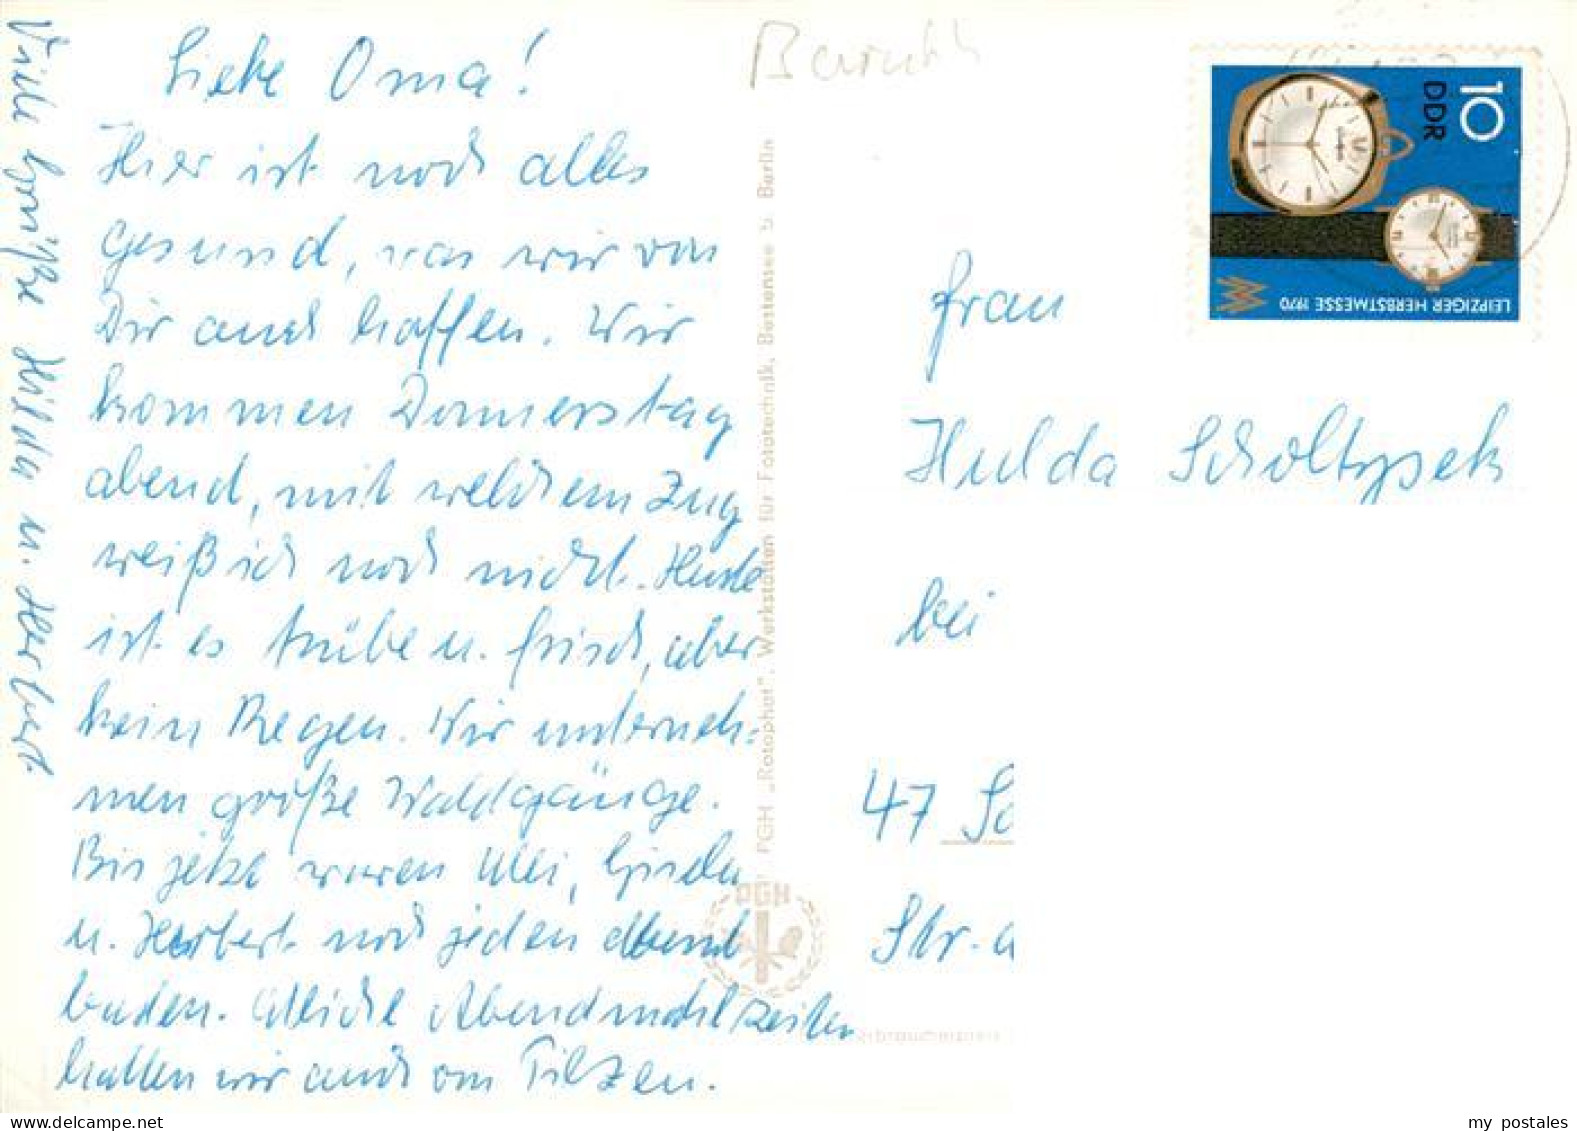 Liebe Oma!
Hier ist noch alles
gesund, was wir von
Dir auch hoffen. Wir
kommen Donnerstag
abend, mit welchem Zug
weiß ich noch nicht. Heute
ist es trübe u. frisch, aber
kein Regen. Wir unterneh=
men große Waldgänge.
Bis jetzt waren Uli, Gisela
u. Herbert noch jeden Abend
baden. Etliche Abendmahlzeiten
hatten wir auch von Pilzen.
Viele Grüße Hilda u. Herbert
PGH „Rotophot", Werkstätten für Fototechnik, Bestensee b. Berlin
PGH
10
DDR
LEIPZIGER HERBSTMESSE 1970
Frau
Hulda Scholtysek
bei
47 Sa
Str. d
my postales